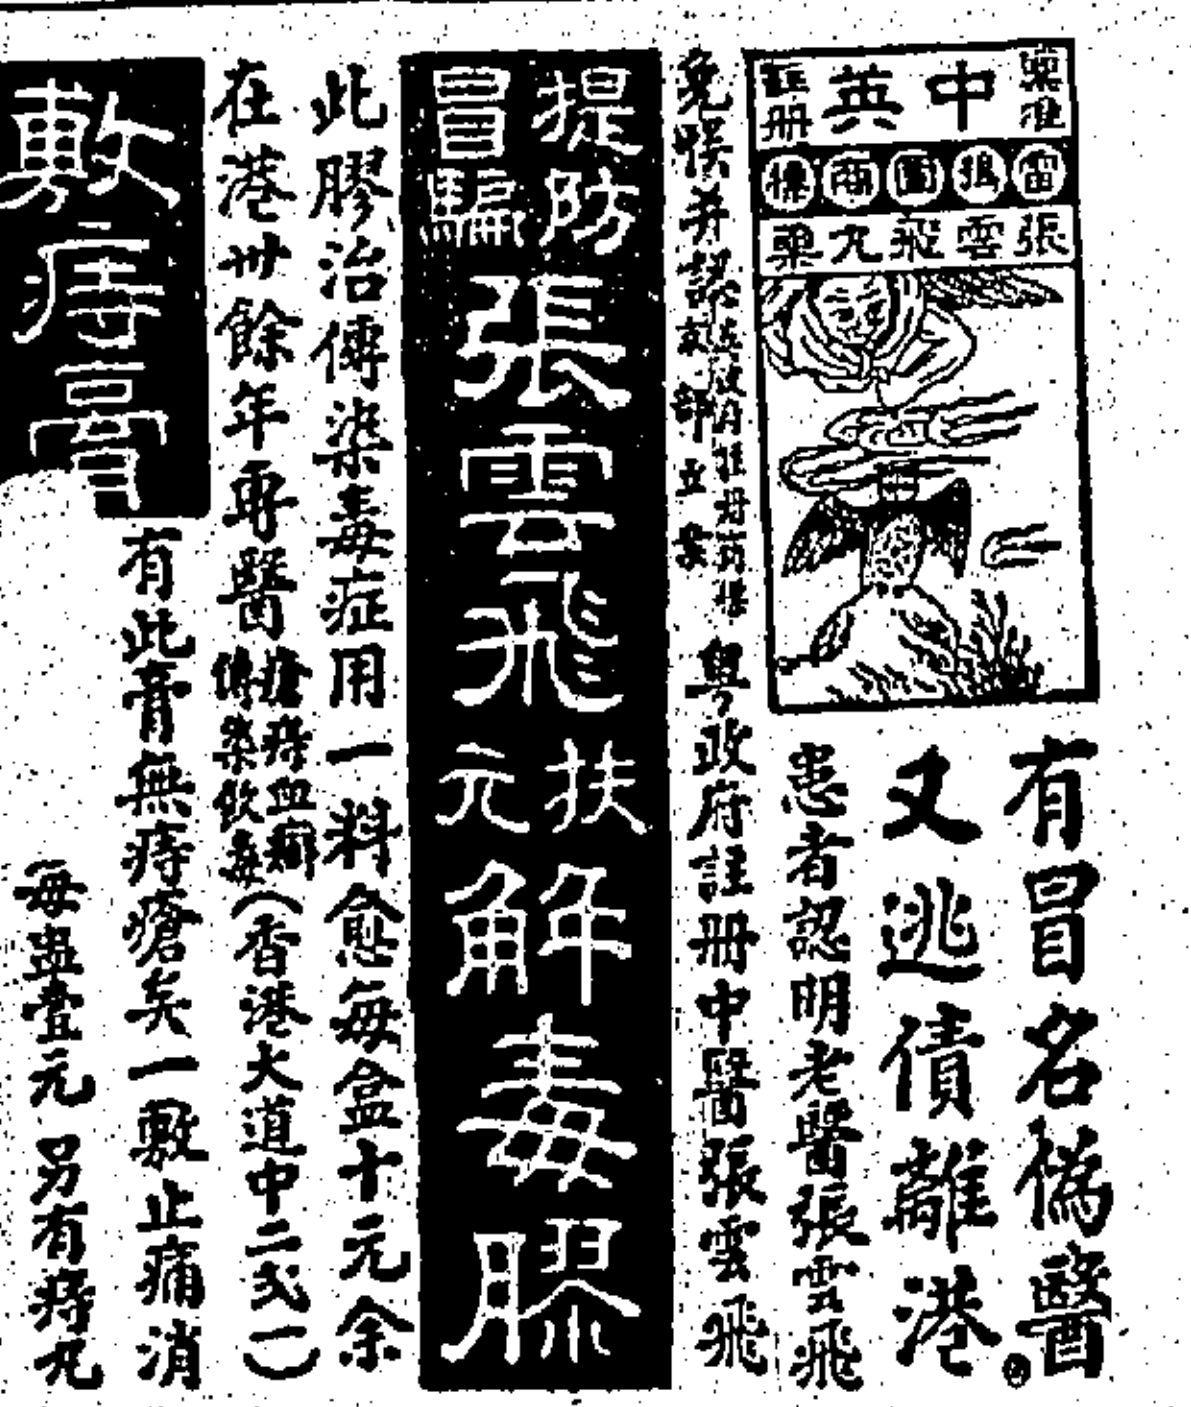 中英
註冊
雷公圖商標
張雲飛九藥
有冒名偽醫
又逃債離港
患者認明老醫張雲飛
免誤
粵政府註冊中醫張雲飛
提防冒騙
張雲飛扶元解毒膠
此膠治傳染毒症用一料愈每盒十元余
在港卅餘年專醫
瘡痔血癬
傳染飲毒
(香港大道中二弍一)
敷痔膏
有此膏無痔瘡矣一敷止痛消
每盅壹元 另有痔丸